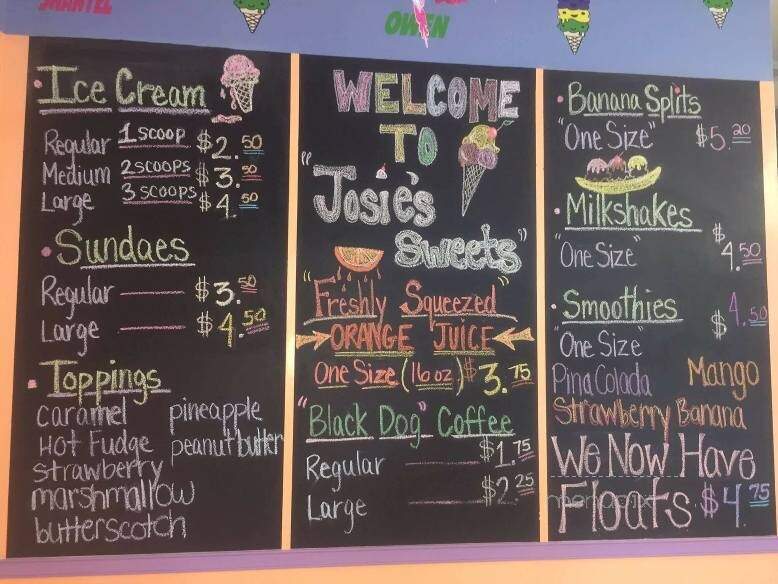 SHANTEL
OWEN
Ice Cream
Regular 1 scoop $2.50
Medium 2 scoops $3.50
Large 3 scoops $4.50
Sundaes
Regular $3.50
Large $4.50
Toppings
caramel pineapple
Hot Fudge peanut butter
strawberry
marshmallow
butterscotch
WELCOME
TO
"Josie's
Sweets"
"Freshly Squeezed"
ORANGE JUICE
One Size (16 oz) $3.75
"Black Dog" Coffee
Regular $1.75
Large $2.25
Banana Splits
"One Size" $5.20
Milkshakes
"One Size" $4.50
Smoothies
"One Size" $4.50
Pina Colada Mango
Strawberry Banana
We Now Have
Floats $4.75